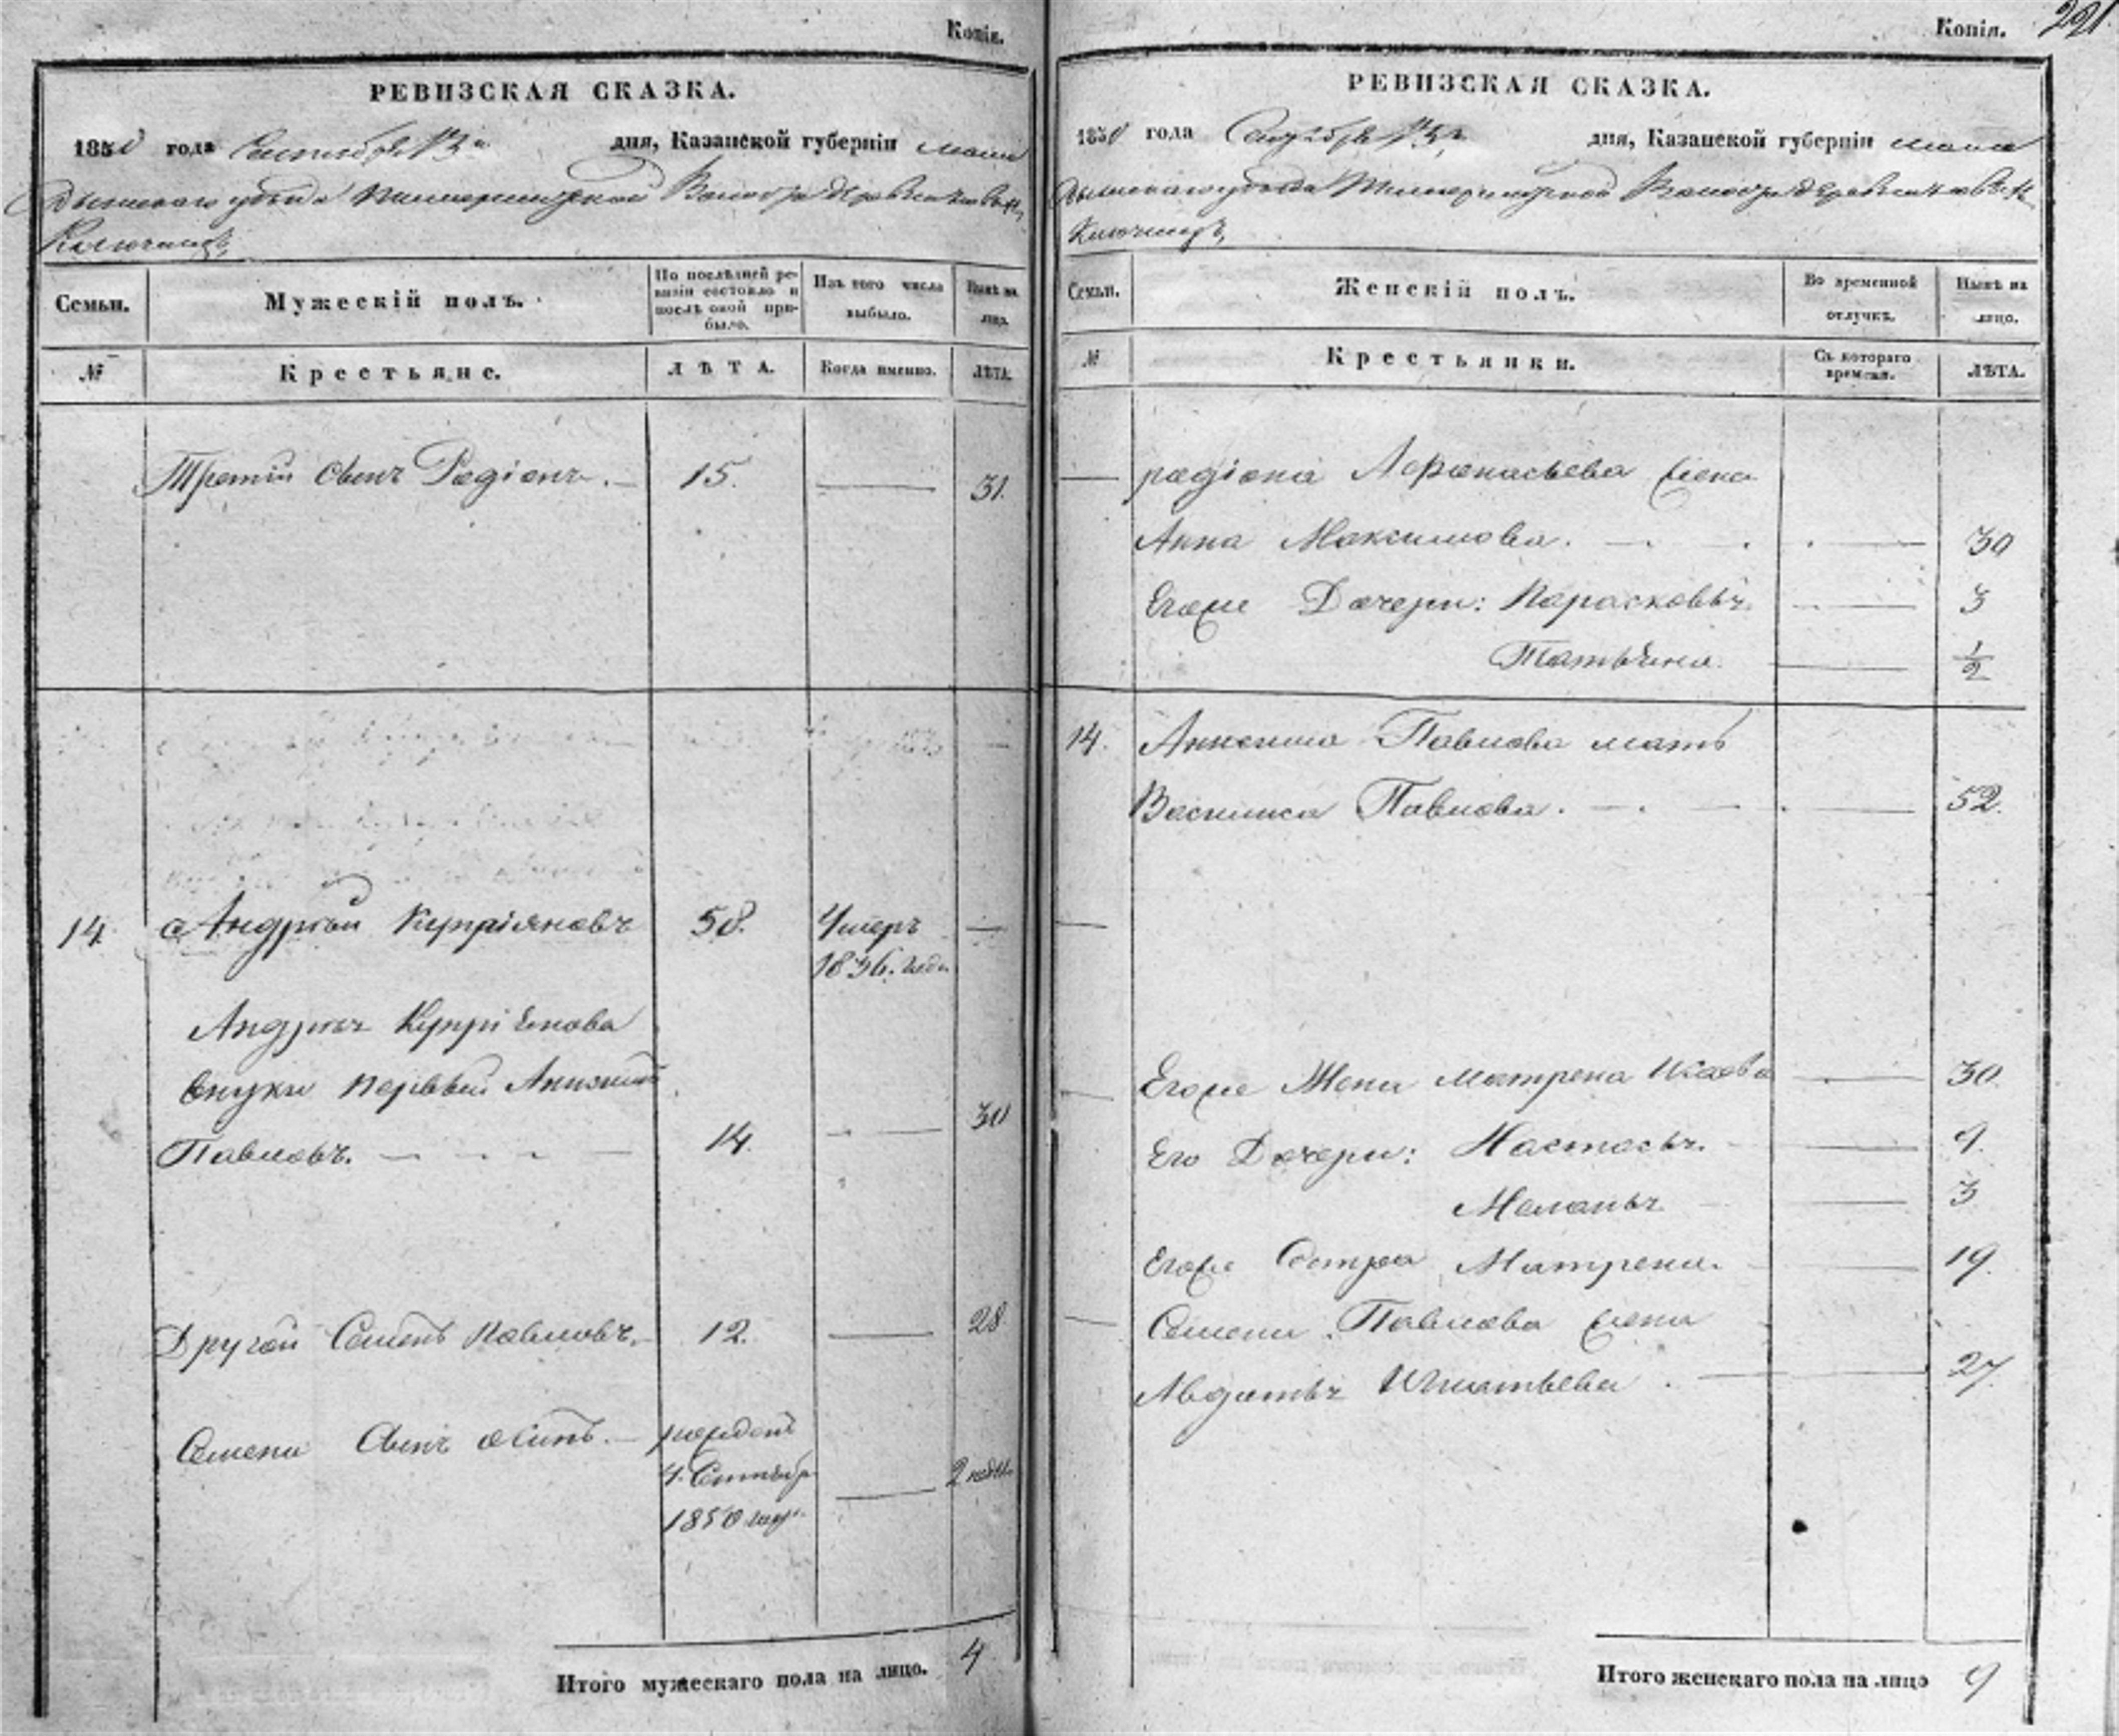 Копія.
РЕВИЗСКАЯ СКАЗКА.
1850 года Сентября 13 дня, Казанской губерніи мама
дышскаго уѣзда Волости
Ключищъ
Семьи.
Мужескій полъ.
По послѣдней ре-
визіи состояло и
послѣ оной при-
было.
Изъ того числа
выбыло.
Нынѣ на
лицо.
№
Крестьяне.
ЛѢТА.
Когда именно.
ЛѢТА.
Третій сынъ Радіонъ. 15. 31.
14 Андрей Купріяновъ 58. Умеръ
1836. года
Андрея Купріянова
внуки первый Анисимъ
Павловъ. 14. 30
Другой Семенъ Павловъ. 12. 28
Семена сынъ Осипъ. рожденъ
4. Сентября
1850 года 2 недѣли
Итого мужескаго пола на лицо. 4
Копія. 221
РЕВИЗСКАЯ СКАЗКА.
1850 года Сентября 13 дня, Казанской губерніи мама
дышскаго уѣзда Волости
Ключищъ
Семьи.
Женскій полъ.
Во временной
отлучкѣ.
Нынѣ на
лицо.
№
Крестьянки.
Съ котораго
времени.
ЛѢТА.
радіона Афанасьева жена
Анна Максимова. 30
Егоже Дочери: Парасковья 3
Татьяна 1/2
14. Анисима Павлова мать
Василиса Павлова. 52.
Егоже Жена Матрена Исаева 30.
Его Дочери: Настасья. 9.
Меланья 3
Егоже Сестра Матрена. 19.
Семена Павлова жена
Авдотья Игнатьева. 27.
Итого женскаго пола на лицо 9